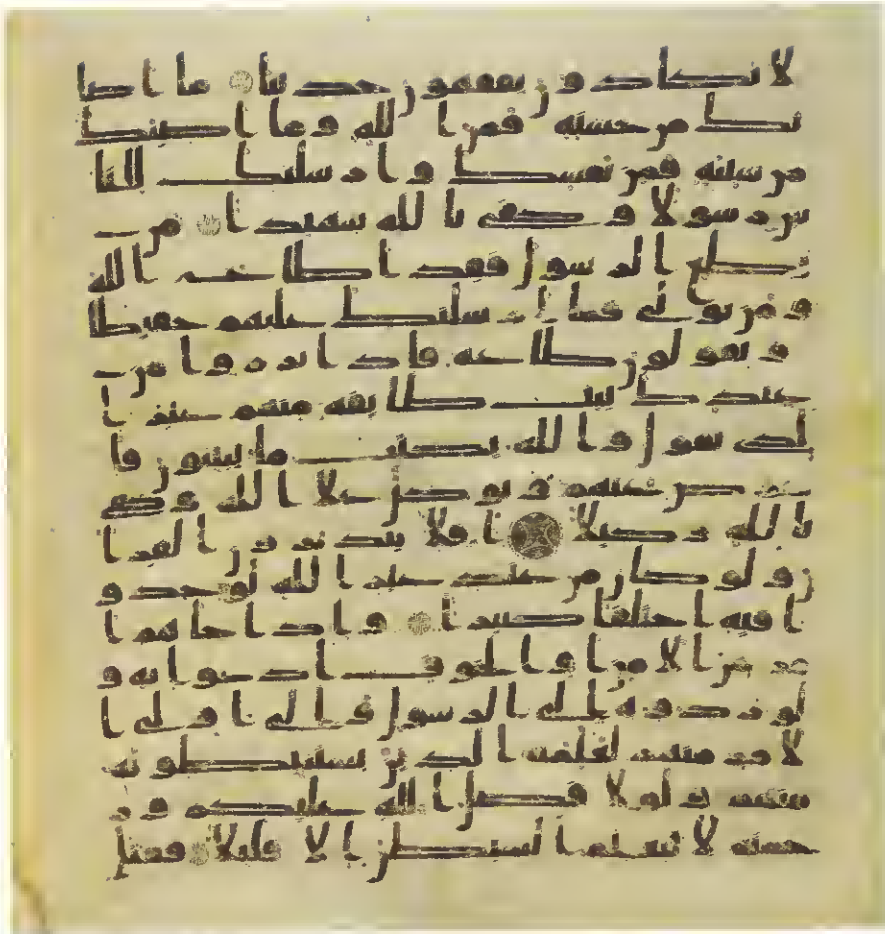 لا يكادون يفقهون حديثا ما اصا
بك من حسنة فمن الله وما اصبك
من سيئة فمن نفسك وارسلنك للنا
س رسولا وكفى بالله شهيدا من
يطع الرسول فقد اطاع الله
ومن تولى فما ارسلنك عليهم حفيظا
ويقولون طاعة فاذا برزوا من
عندك بيت طايفة منهم غير ا
لذي تقول والله يكتب ما يبيتون فا
عرض عنهم وتوكل على الله وكفى
بالله وكيلا افلا يتدبرون القرا
ن ولو كان من عند غير الله لوجدو
ا فيه اختلفا كثيرا واذا جاهم ا
مر من الامن او الخوف اذاعوا به و
لو ردوه الى الرسول والى اولى ا
لامر منهم لعلمه الذين يستنبطونه
منهم ولولا فضل الله عليكم ور
حمته لاتبعتم الشيطن الا قليلا فقتل